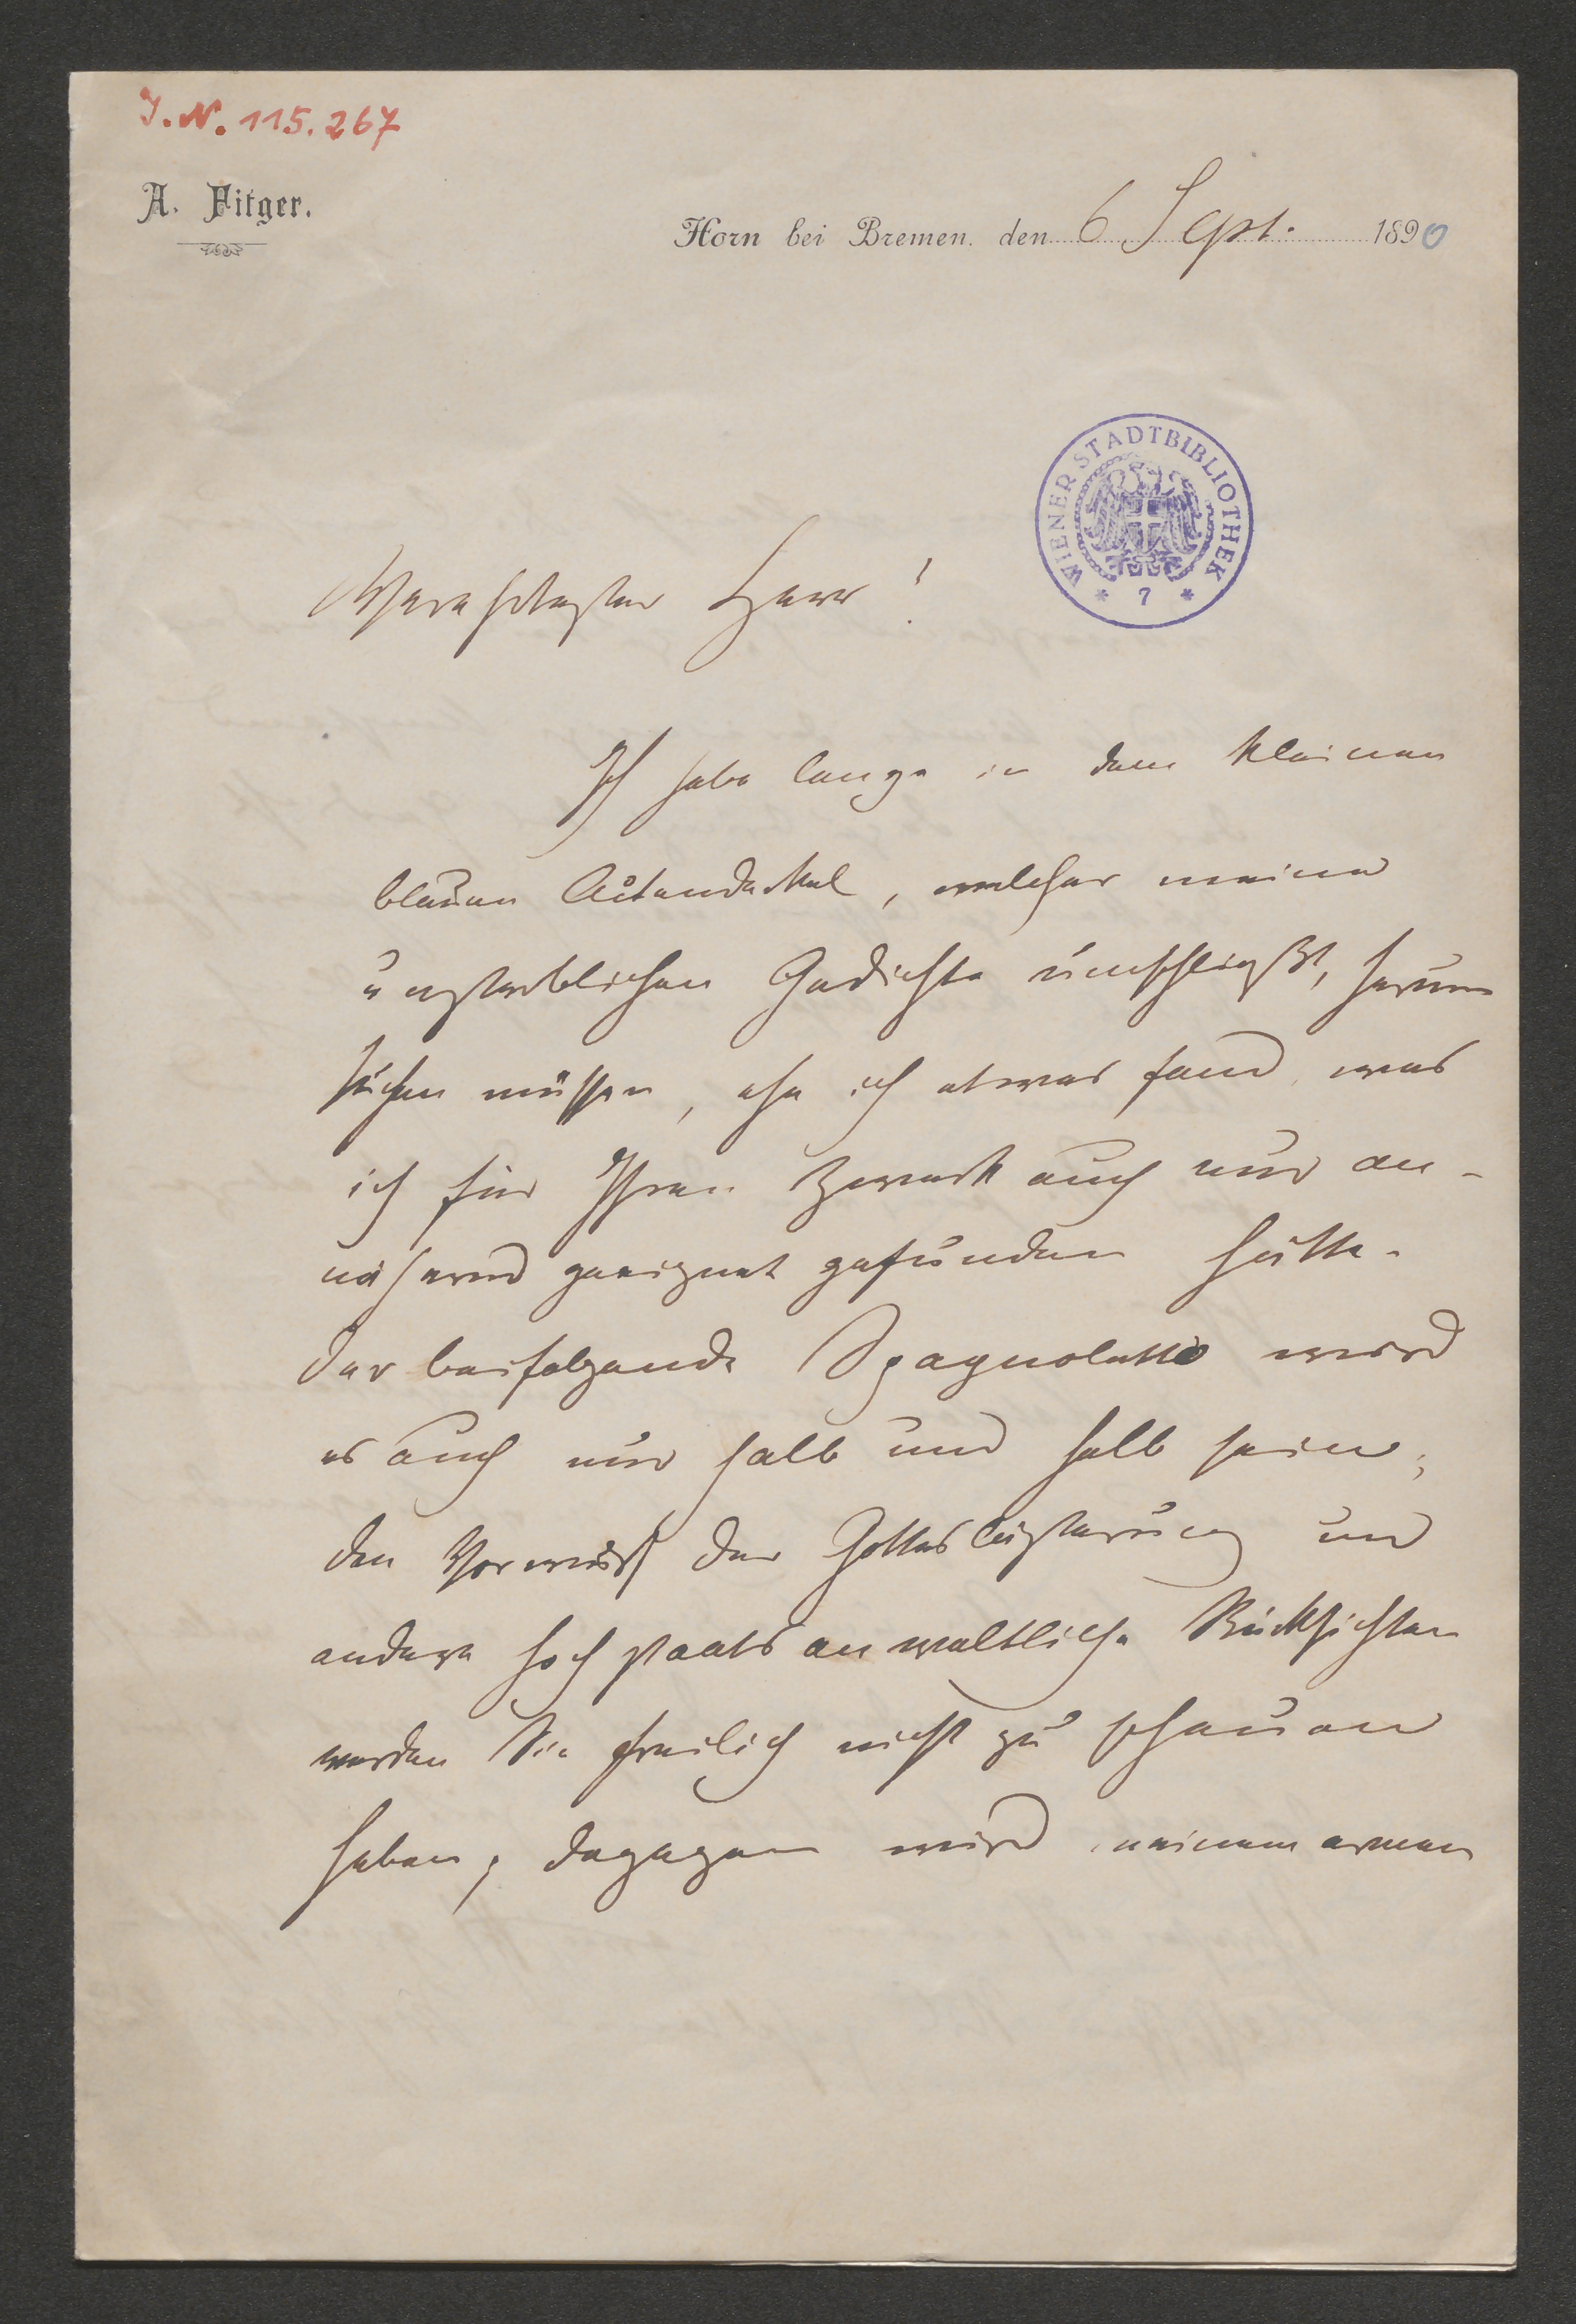 J. N. 115.267
A. Fitger.
Horn bei Bremen. den 6 Sept. 1890
WIENER STADTBIBLIOTHEK
* 7 *
Verehrtester Herr!
Ich habe lange in dem kleinen
blauen Actendeckel, welcher meine
unsterblichen Gedichte umschließt, herum
suchen müssen, ehe ich etwas fand, was
ich für Ihren Zweck auch nur an-
nähernd geeignet gefunden hätte.
Der beifolgende Spagnoletto wird
es auch nur halb und halb sein;
den Vorwurf der Gotteslästerung und
andere hoch staatsanwaltliche Rücksichten
werden Sie freilich nicht zu scheuen
haben; dagegen wird meinem armen